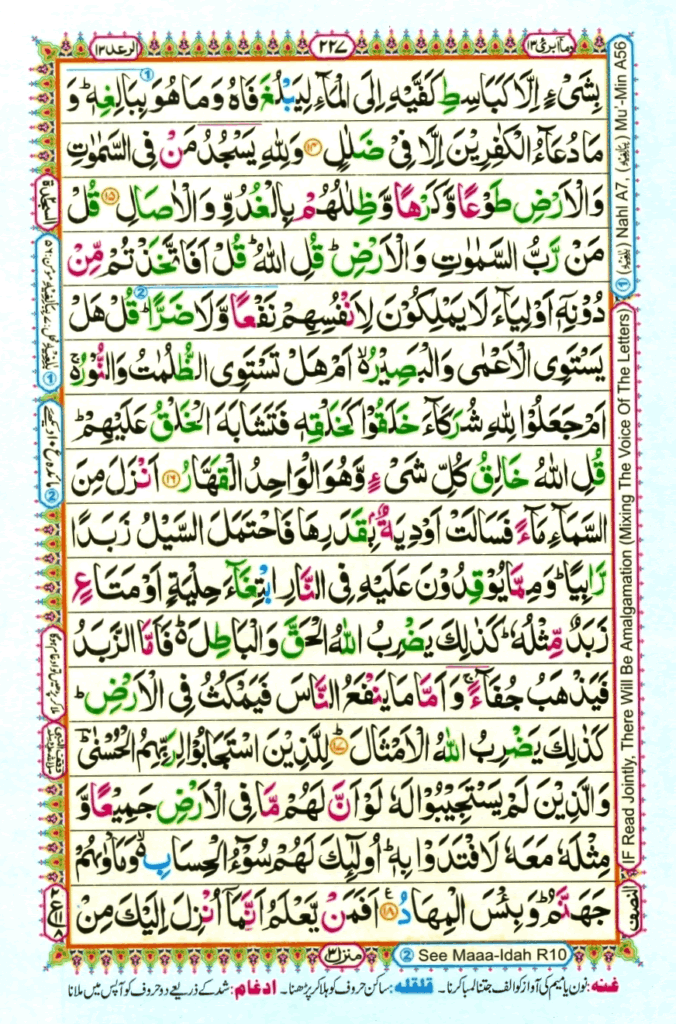 وما ابرئ ١٣
٢٢٧
الرعد ١٣
بِشَىْءٍ اِلَّا كَبَاسِطِ كَفَّيْهِ اِلَى الْمَآءِ لِيَبْلُغَ فَاهُ وَمَا هُوَ بِبَالِغِهٖ ؕ وَ
مَا دُعَآءُ الْكٰفِرِيْنَ اِلَّا فِىْ ضَلٰلٍ ﴿۱۴﴾ وَلِلّٰهِ يَسْجُدُ مَنْ فِى السَّمٰوٰتِ
وَالْاَرْضِ طَوْعًا وَّكَرْهًا وَّظِلٰلُهُمْ بِالْغُدُوِّ وَالْاٰصَالِ ﴿۱۵﴾ قُلْ
مَنْ رَّبُّ السَّمٰوٰتِ وَالْاَرْضِ ؕ قُلِ اللّٰهُ ؕ قُلْ اَفَاتَّخَذْتُمْ مِّنْ
دُوْنِهٖۤ اَوْلِيَآءَ لَا يَمْلِكُوْنَ لِاَنْفُسِهِمْ نَفْعًا وَّلَا ضَرًّا ؕ قُلْ هَلْ
يَسْتَوِى الْاَعْمٰى وَالْبَصِيْرُ ۙ اَمْ هَلْ تَسْتَوِى الظُّلُمٰتُ وَالنُّوْرُ ۚ
اَمْ جَعَلُوْا لِلّٰهِ شُرَكَآءَ خَلَقُوْا كَخَلْقِهٖ فَتَشَابَهَ الْخَلْقُ عَلَيْهِمْ ؕ
قُلِ اللّٰهُ خَالِقُ كُلِّ شَىْءٍ وَّهُوَ الْوَاحِدُ الْقَهَّارُ ﴿۱۶﴾ اَنْزَلَ مِنَ
السَّمَآءِ مَآءً فَسَالَتْ اَوْدِيَةٌۢ بِقَدَرِهَا فَاحْتَمَلَ السَّيْلُ زَبَدًا
رَّابِيًا ؕ وَمِمَّا يُوْقِدُوْنَ عَلَيْهِ فِى النَّارِ ابْتِغَآءَ حِلْيَةٍ اَوْ مَتَاعٍ
زَبَدٌ مِّثْلُهٗ ؕ كَذٰلِكَ يَضْرِبُ اللّٰهُ الْحَقَّ وَالْبَاطِلَ ۬ؕ فَاَمَّا الزَّبَدُ
فَيَذْهَبُ جُفَآءً ۚ وَاَمَّا مَا يَنْفَعُ النَّاسَ فَيَمْكُثُ فِى الْاَرْضِ ؕ
كَذٰلِكَ يَضْرِبُ اللّٰهُ الْاَمْثَالَ ؕ﴿۱۷﴾ لِلَّذِيْنَ اسْتَجَابُوْا لِرَبِّهِمُ الْحُسْنٰى ؕ
وَالَّذِيْنَ لَمْ يَسْتَجِيْبُوْا لَهٗ لَوْ اَنَّ لَهُمْ مَّا فِى الْاَرْضِ جَمِيْعًا وَّ
مِثْلَهٗ مَعَهٗ لَافْتَدَوْا بِهٖ ؕ اُولٰٓئِكَ لَهُمْ سُوْٓءُ الْحِسَابِ ۙ وَمَاْوٰىهُمْ
جَهَنَّمُ ؕ وَبِئْسَ الْمِهَادُ ﴿۱۸﴾ اَفَمَنْ يَّعْلَمُ اَنَّمَاۤ اُنْزِلَ اِلَيْكَ مِنْ
منزل ٣
② See Maaa-Idah R10
① (بَالِغِيْهِ) Nahl A7, (بِبَالِغِيْهِ) Mu'-Min A56
IF Read Jointly, There Will Be Amalgamation (Mixing The Voice Of The Letters)
النصف
السجدة
غنہ: نون یا میم کی آواز کو الف جتنا لمبا کرنا۔ قلقلہ: ساکن حروف کو ہلا کر پڑھنا۔ ادغام: شد کے ذریعے دو حروف کو آپس میں ملانا